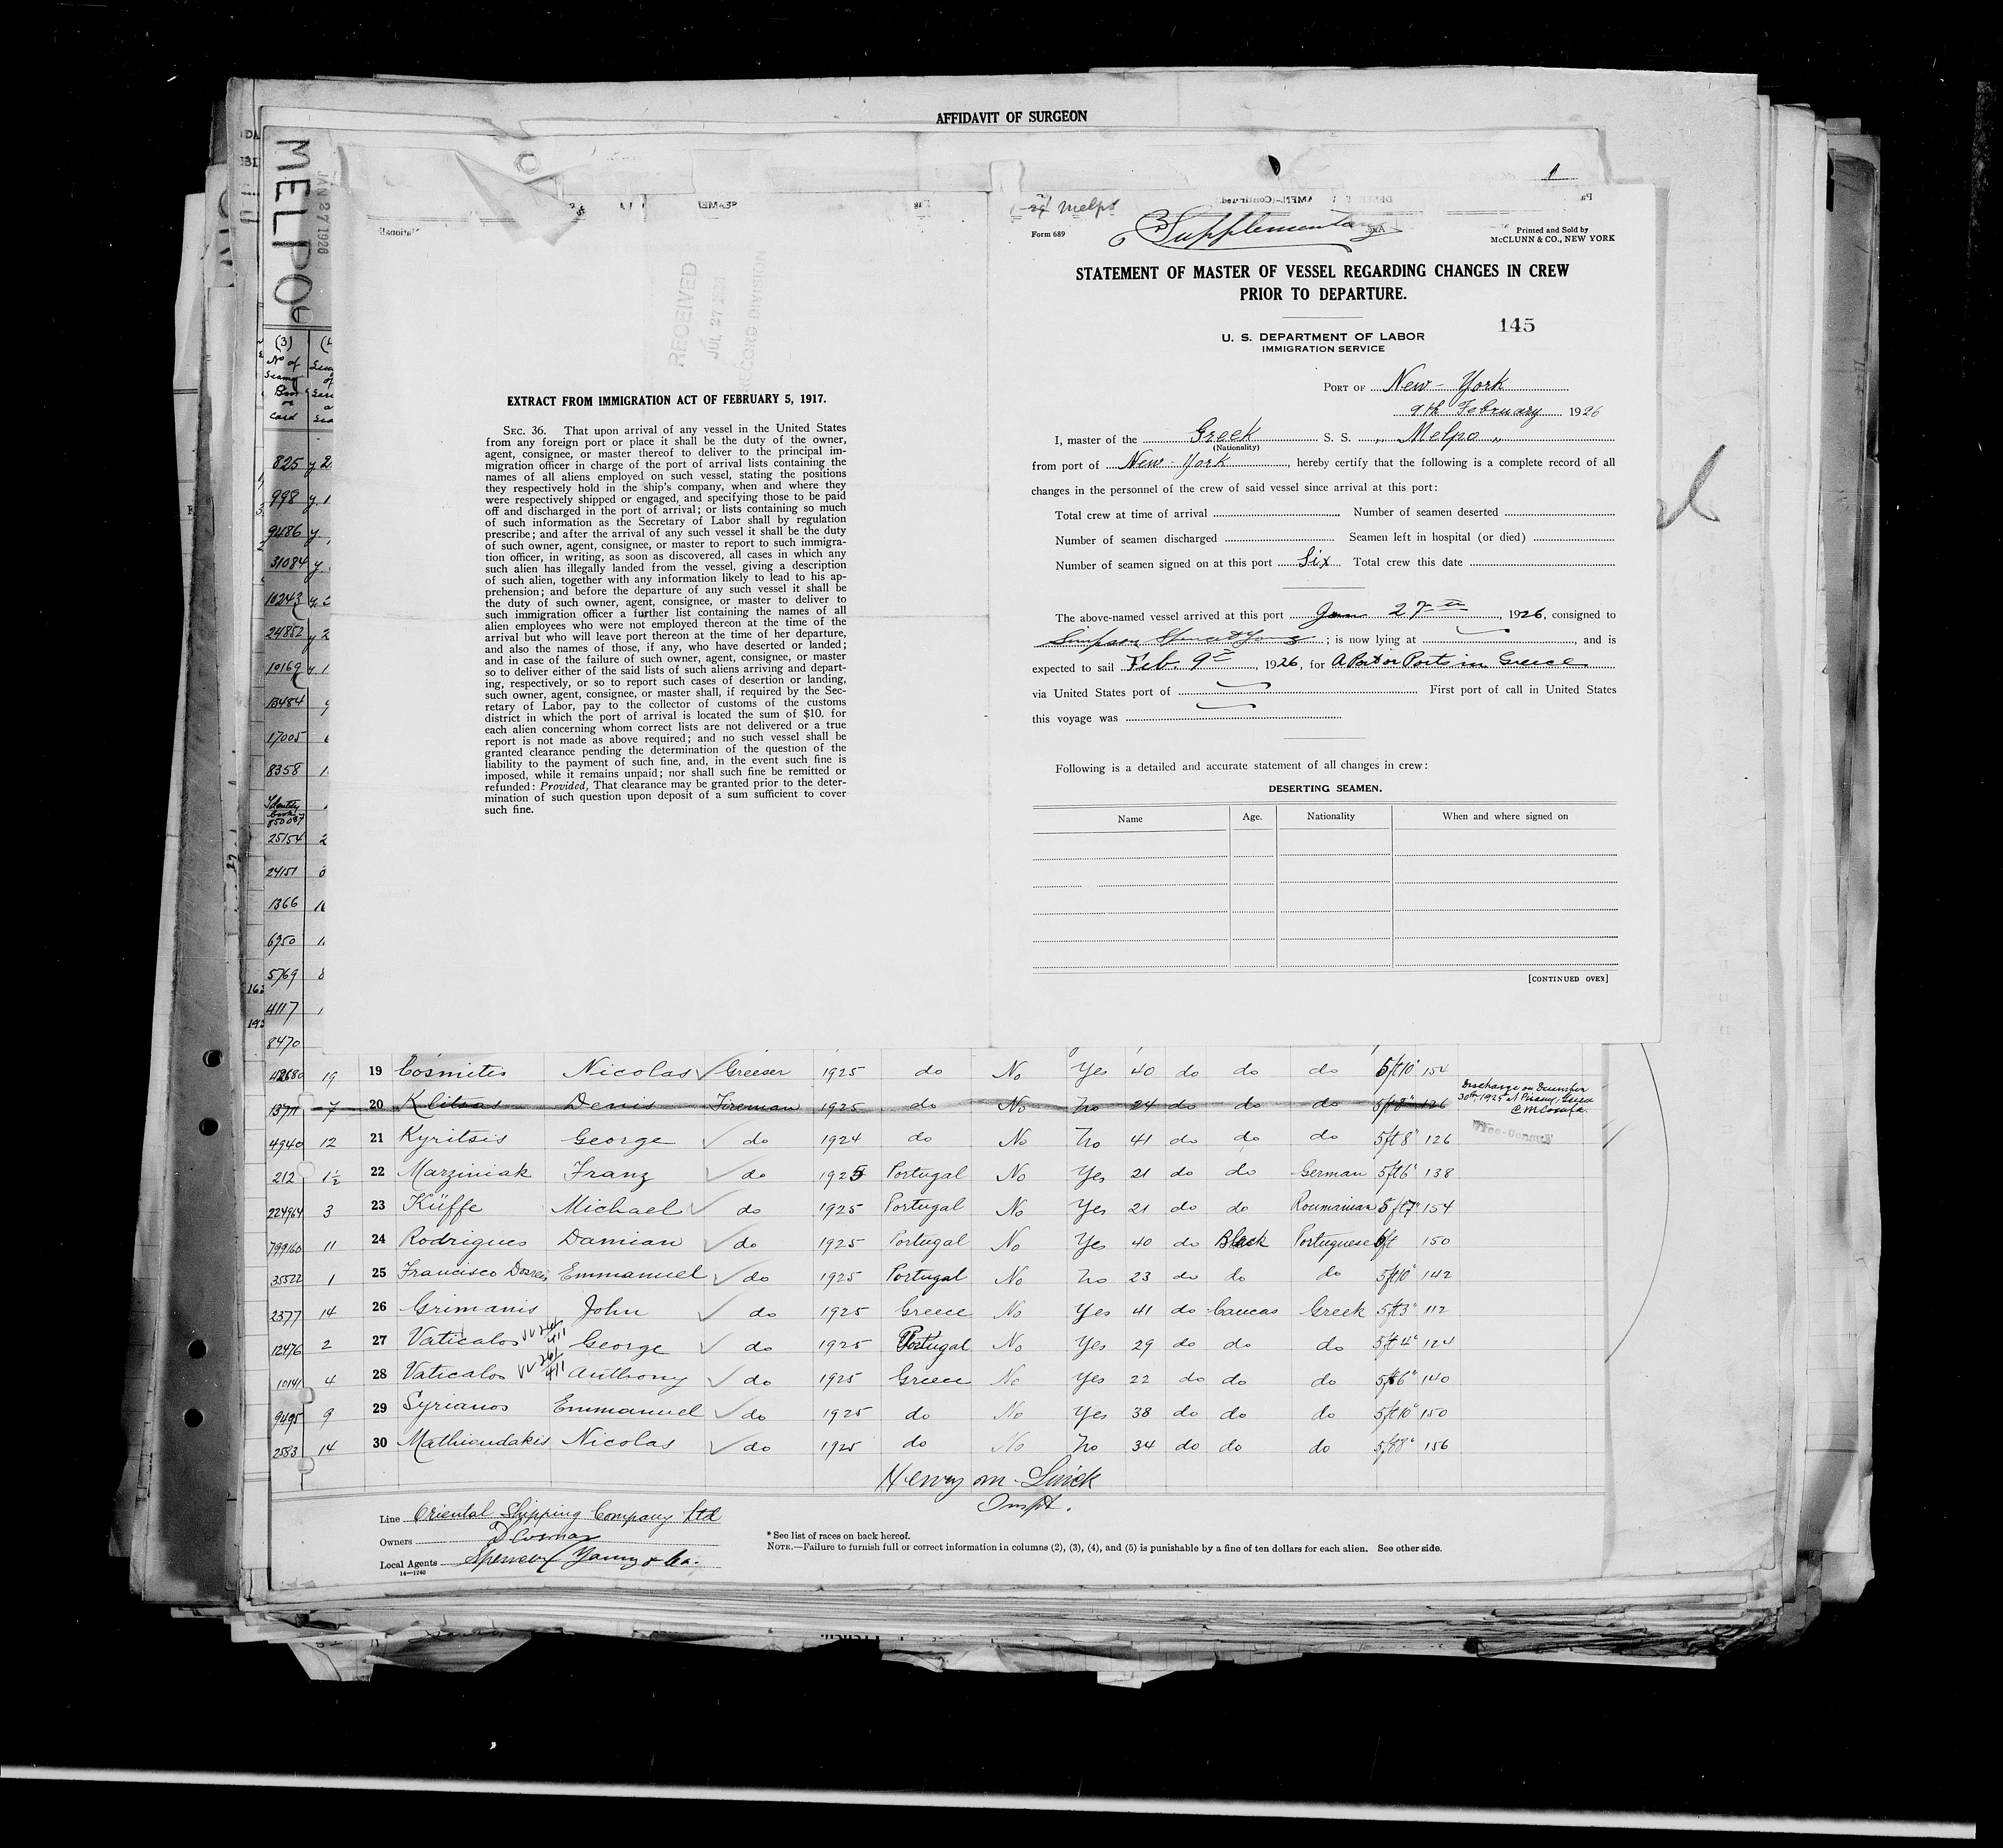 AFFIDAVIT OF SURGEON
MELPO
JAN 27 1926
(3)
No of
Card
825
998
9486
31084
10243
24852
10169
13484
17005
8358
Identity
book
850037
25154
24151
1366
6950
5769
4117
8470
RECEIVED
JUL 27
RECORD DIVISION
EXTRACT FROM IMMIGRATION ACT OF FEBRUARY 5, 1917.
SEC. 36. That upon arrival of any vessel in the United States
from any foreign port or place it shall be the duty of the owner,
agent, consignee, or master thereof to deliver to the principal im-
migration officer in charge of the port of arrival lists containing the
names of all aliens employed on such vessel, stating the positions
they respectively hold in the ship's company, when and where they
were respectively shipped or engaged, and specifying those to be paid
off and discharged in the port of arrival; or lists containing so much
of such information as the Secretary of Labor shall by regulation
prescribe; and after the arrival of any such vessel it shall be the duty
of such owner, agent, consignee, or master to report to such immigra-
tion officer, in writing, as soon as discovered, all cases in which any
such alien has illegally landed from the vessel, giving a description
of such alien, together with any information likely to lead to his ap-
prehension; and before the departure of any such vessel it shall be
the duty of such owner, agent, consignee, or master to deliver to
such immigration officer a further list containing the names of all
alien employees who were not employed thereon at the time of the
arrival but who will leave port thereon at the time of her departure,
and also the names of those, if any, who have deserted or landed;
and in case of the failure of such owner, agent, consignee, or master
so to deliver either of the said lists of such aliens arriving and depart-
ing, respectively, or so to report such cases of desertion or landing,
such owner, agent, consignee, or master shall, if required by the Sec-
retary of Labor, pay to the collector of customs of the customs
district in which the port of arrival is located the sum of $10. for
each alien concerning whom correct lists are not delivered or a true
report is not made as above required; and no such vessel shall be
granted clearance pending the determination of the question of the
liability to the payment of such fine, and, in the event such fine is
imposed, while it remains unpaid; nor shall such fine be remitted or
refunded: Provided, That clearance may be granted prior to the deter-
mination of such question upon deposit of a sum sufficient to cover
such fine.
Melpo
Form 689
Supplementary
Printed and Sold by
McCLUNN & CO., NEW YORK
STATEMENT OF MASTER OF VESSEL REGARDING CHANGES IN CREW
PRIOR TO DEPARTURE.
145
U. S. DEPARTMENT OF LABOR
IMMIGRATION SERVICE
PORT OF New-York
9th February 1926
I, master of the Greek S. S. "Melpo"
(Nationality)
from port of New-York, hereby certify that the following is a complete record of all
changes in the personnel of the crew of said vessel since arrival at this port:
Total crew at time of arrival Number of seamen deserted
Number of seamen discharged Seamen left in hospital (or died)
Number of seamen signed on at this port Six Total crew this date
The above-named vessel arrived at this port Jan 27th, 1926, consigned to
Simpson Spence & Young; is now lying at , and is
expected to sail Feb. 9th, 1926, for A Port or Ports in Greece
via United States port of First port of call in United States
this voyage was
Following is a detailed and accurate statement of all changes in crew:
DESERTING SEAMEN.
Name Age. Nationality When and where signed on
[CONTINUED OVER]
19 19 Cosmitis Nicolas Greeser 1925 do No Yes 40 do do do 5ft10" 154
7 20 Klitsas Denis Fireman 1925 do No No 24 do do do 5ft8" 126 Discharge on December
30th, 1925 at Piraeus, Greece
Vice-Consul
4940 12 21 Kyritsis George do 1924 do No No 41 do do do 5ft8" 126
212 1½ 22 Marziniak Franz do 1925 Portugal No Yes 21 do do German 5ft6" 138
224964 3 23 Küffe Michael do 1925 Portugal No Yes 21 do do Roumanian 5ft7" 154
799160 11 24 Rodrigues Damian do 1925 Portugal No Yes 40 do Black Portuguese 6ft 150
35522 1 25 Francisco Dosreis Emmanuel do 1925 Portugal No No 23 do do do 5ft10" 142
2377 14 26 Grimanis John do 1925 Greece No Yes 41 do Caucas Greek 5ft3" 112
12476 2 27 Vaticalos George do 1925 Portugal No Yes 29 do do do 5ft4" 124
10141 4 28 Vaticalos Anthony do 1925 Greece No Yes 22 do do do 5ft6" 140
9495 9 29 Syrianos Emmanuel do 1925 do No Yes 38 do do do 5ft10" 150
2583 14 30 Mathioudakis Nicolas do 1925 do No No 34 do do do 5ft8" 156
Henry M.
Inspt.
Line Oriental Shipping Company Ltd
Owners
Local Agents Spencer Young & Co.
14—1240
* See list of races on back hereof.
NOTE.—Failure to furnish full or correct information in columns (2), (3), (4), and (5) is punishable by a fine of ten dollars for each alien. See other side.